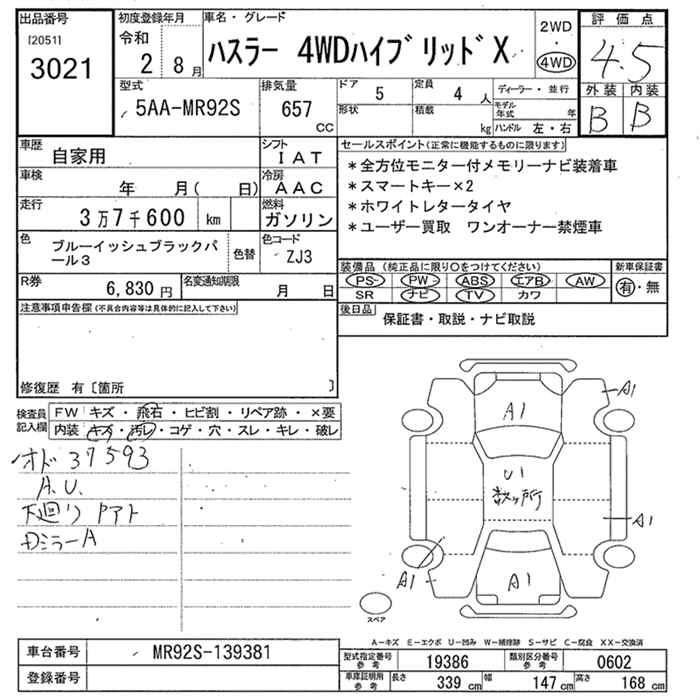 出品番号
[2051]
3021
初度登録年月
令和
2年 8月
車名・グレード
ハスラー 4WDハイブリッドX
2WD
・
4WD
評価点
4.5
外装 内装
B B
型式
5AA-MR92S
排気量
657 CC
ドア 5
定員 4 人
形状
積載 kg
ディーラー・並行
モデル年式 年
ハンドル 左・右
車歴
自家用
シフト
IAT
車検
年 月( 日)
冷房
AAC
走行
3万7千600 km
燃料
ガソリン
色
ブルーイッシュブラックパール3
色替
色コード
ZJ3
R券
6,830円
名変通知期限
月 日
セールスポイント(正常に機能するものに限ります)
*全方位モニター付メモリーナビ装着車
*スマートキー×2
*ホワイトレタータイヤ
*ユーザー買取 ワンオーナー禁煙車
装備品(純正品に限り○をつけてください)
PS PW ABS エアB AW
SR ナビ TV カワ
新車保証書
有・無
後日品
保証書・取説・ナビ取説
注意事項申告欄(不具合内容等は具体的に記入して下さい)
修復歴 有〔箇所 〕
検査員記入欄
FW キズ・飛石・ヒビ割・リペア跡・×要
内装 キズ・汚レ・コゲ・穴・スレ・キレ・破レ
オド 37593
A.U.
下廻り
ミラーA
A1
A1
U1
数ヶ所
A1
A1
A1
スペア
A-キズ E-エクボ U-凹み W-補修跡 S-サビ C-腐食 XX-交換済
車台番号
MR92S-139381
登録番号
型式指定番号 参考
19386
類別区分番号 参考
0602
車庫証明用 参考
長さ 339 cm
幅 147 cm
高さ 168 cm